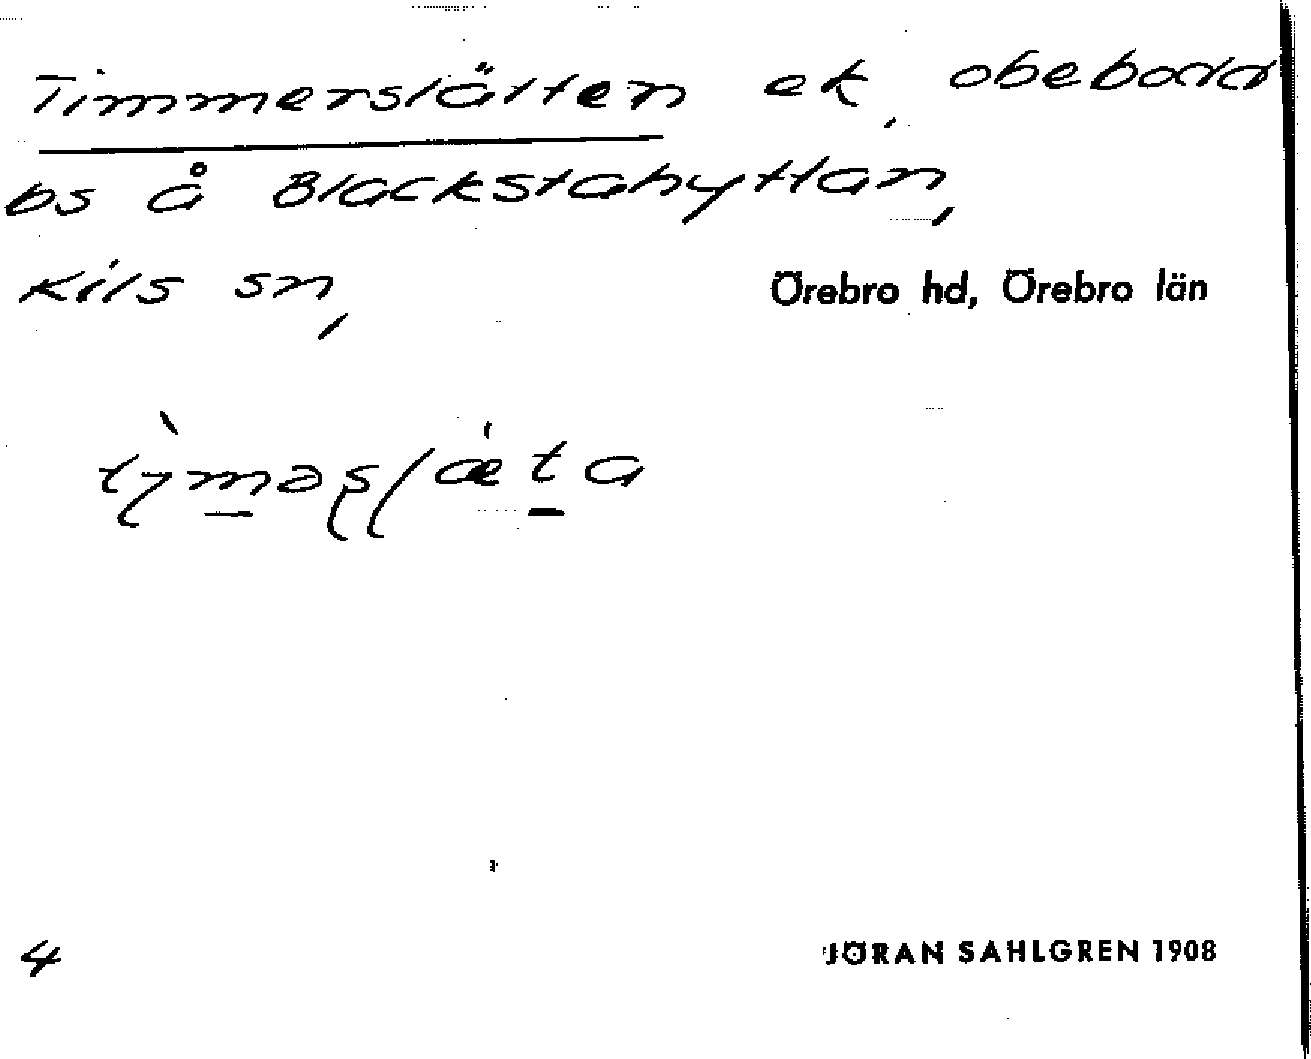 Timmerslätten ek, obebodd
bs å Blackstahyttan,
Kils sn, Örebro hd, Örebro län
tỳməʂlæ̀ta
4 JÖRAN SAHLGREN 1908